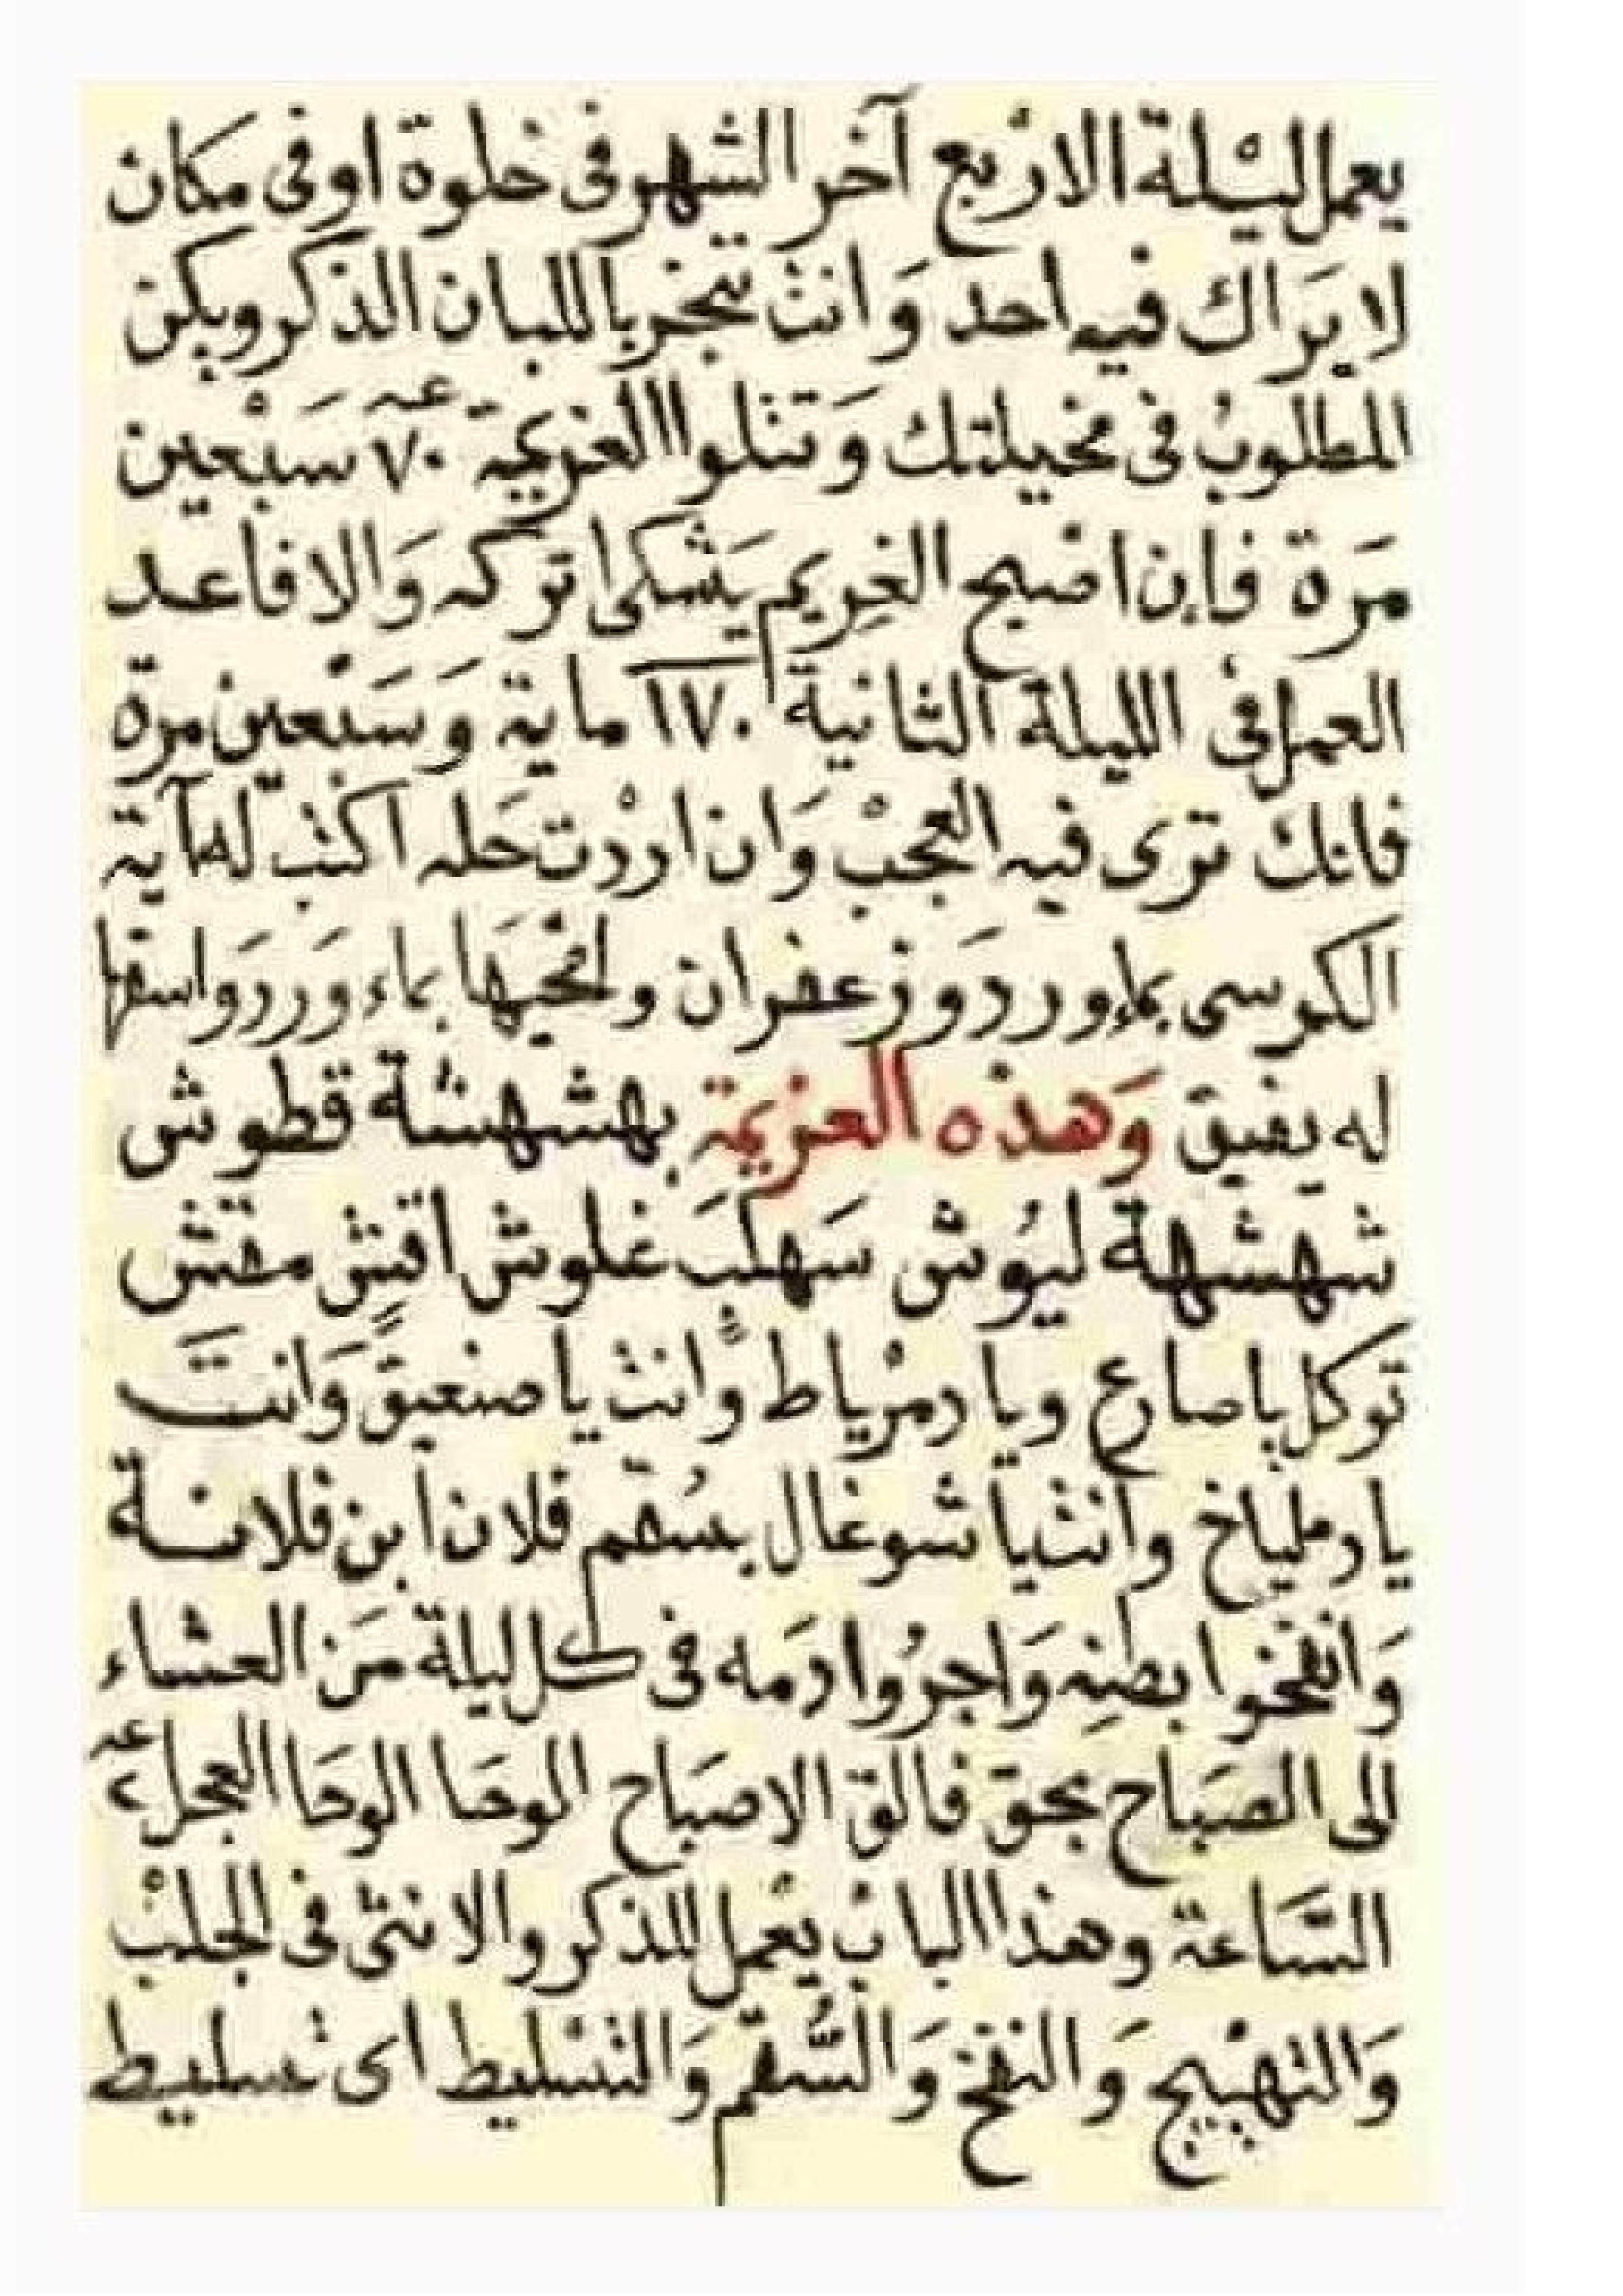 يعمل ليْلة الارْبع آخر الشهر فى خلوة او فى مكان
لا يَراك فيه احد وَانت تبخر باللبان الذكر ويكن
المطلوبُ فى مخيلتك وَتتلوا العزيمة ٧٠ سَبْعين
مَرة فإن اصْبح الغِريم يَشكى اتركه وَالا فاعد
العمل فى الليلة الثانية ١٧٠ ماية وَسَبْعين مرة
فانك ترى فيه العجبْ وَان ارْدت حَله اكتب له آية
الكرسى بماء ورد وَزعفران وامحيهَا بماء وَرد وَاسقها
له يفيق وَهذه العزيمة بهشهشة قطوش
شهشهة ليُوش سَهلَب غلوش اقشٍ مقش
توكل يا صاع ويا دمرْياط وَانت يا صنعيق وَانتَ
يا دملياخ وانت يا شوغال بسُقم فلان ابن فلانة
وَانفخوا بطنِه وَاجرُوا دمَه فى كل ليلة مَن العشاء
الى الصَباح بحق فالق الاصبَاح الوحَا الوحَا العجل ٢
السَّاعة وهذا البابْ يعْمل للذكر والانثى فى الجلبْ
وَالتهْييج وَالنفخ وَالسُّقم وَالتسْليط اى تسليط